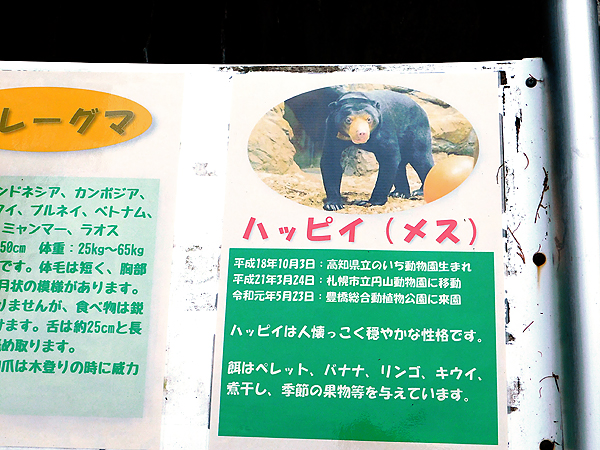 レーグマ
ンドネシア、カンボジア、
タイ、ブルネイ、ベトナム、
ミャンマー、ラオス
50cm 体重：25kg〜65kg
です。体毛は短く、胸部
月状の模様があります。
りませんが、食べ物は鋭
けます。舌は約25cmと長
め取ります。
爪は木登りの時に威力
ハッピイ（メス）
平成18年10月3日：高知県立のいち動物園生まれ
平成21年3月24日：札幌市立円山動物園に移動
令和元年5月23日：豊橋総合動植物公園に来園
ハッピイは人懐っこく穏やかな性格です。
餌はペレット、バナナ、リンゴ、キウイ、
煮干し、季節の果物等を与えています。